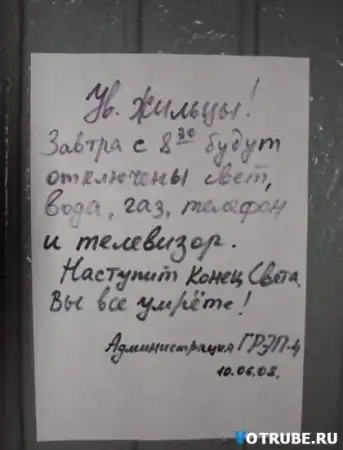 Ув. жильцы!
Завтра с 8 30 будут
отключены свет,
вода, газ, телефон
и телевизор.
Наступит Конец Света.
Вы все умрёте!
Администрация ГРЭП-4
10.06.08.
VOTRUBE.RU